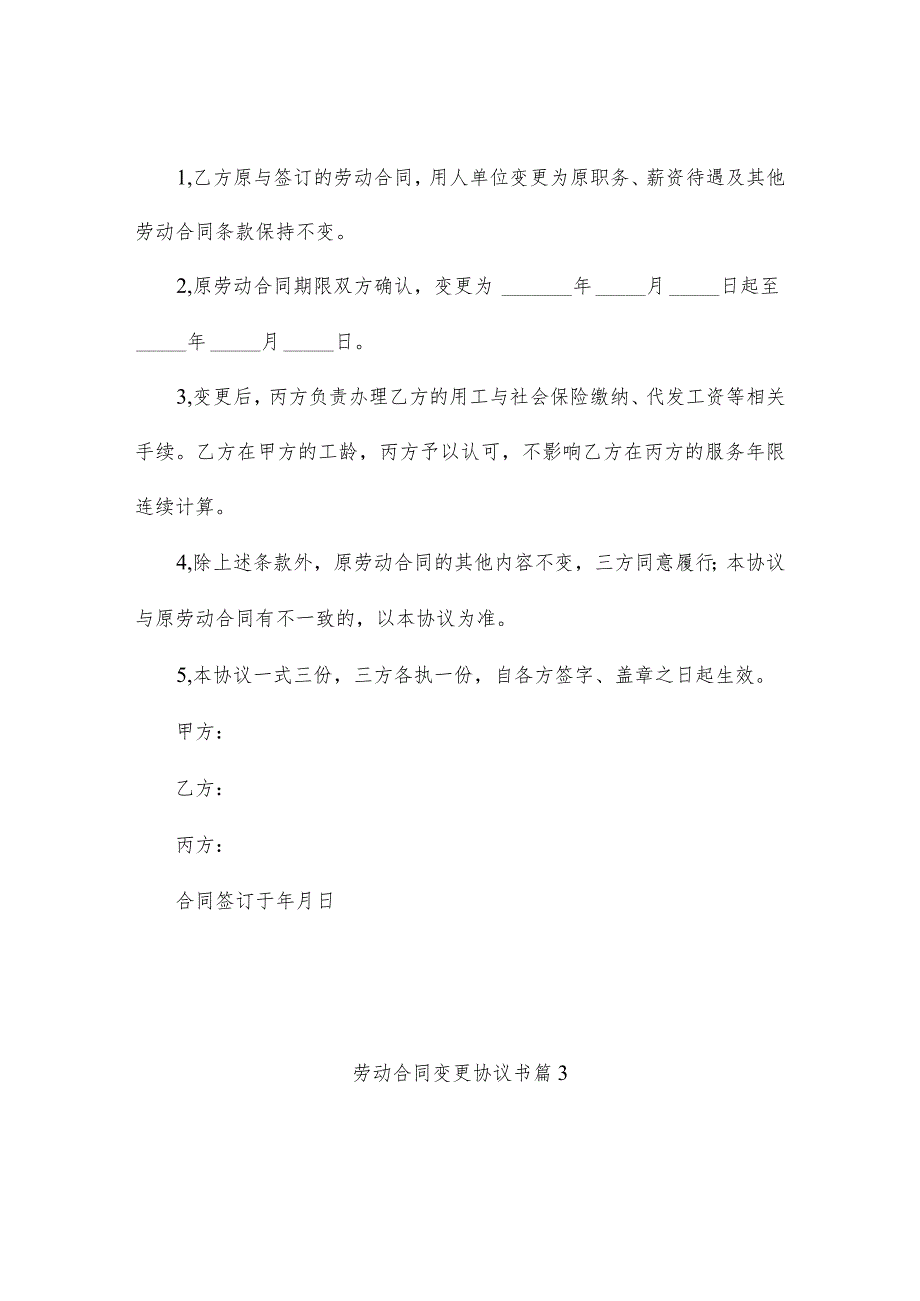 1,乙方原与签订的劳动合同，用人单位变更为原职务、薪资待遇及其他
劳动合同条款保持不变。
2,原劳动合同期限双方确认，变更为 _______年_____月_____日起至
_____年_____月_____日。
3,变更后，丙方负责办理乙方的用工与社会保险缴纳、代发工资等相关
手续。乙方在甲方的工龄，丙方予以认可，不影响乙方在丙方的服务年限
连续计算。
4,除上述条款外，原劳动合同的其他内容不变，三方同意履行；本协议
与原劳动合同有不一致的，以本协议为准。
5,本协议一式三份，三方各执一份，自各方签字、盖章之日起生效。
甲方：
乙方：
丙方：
合同签订于年月日
劳动合同变更协议书篇3